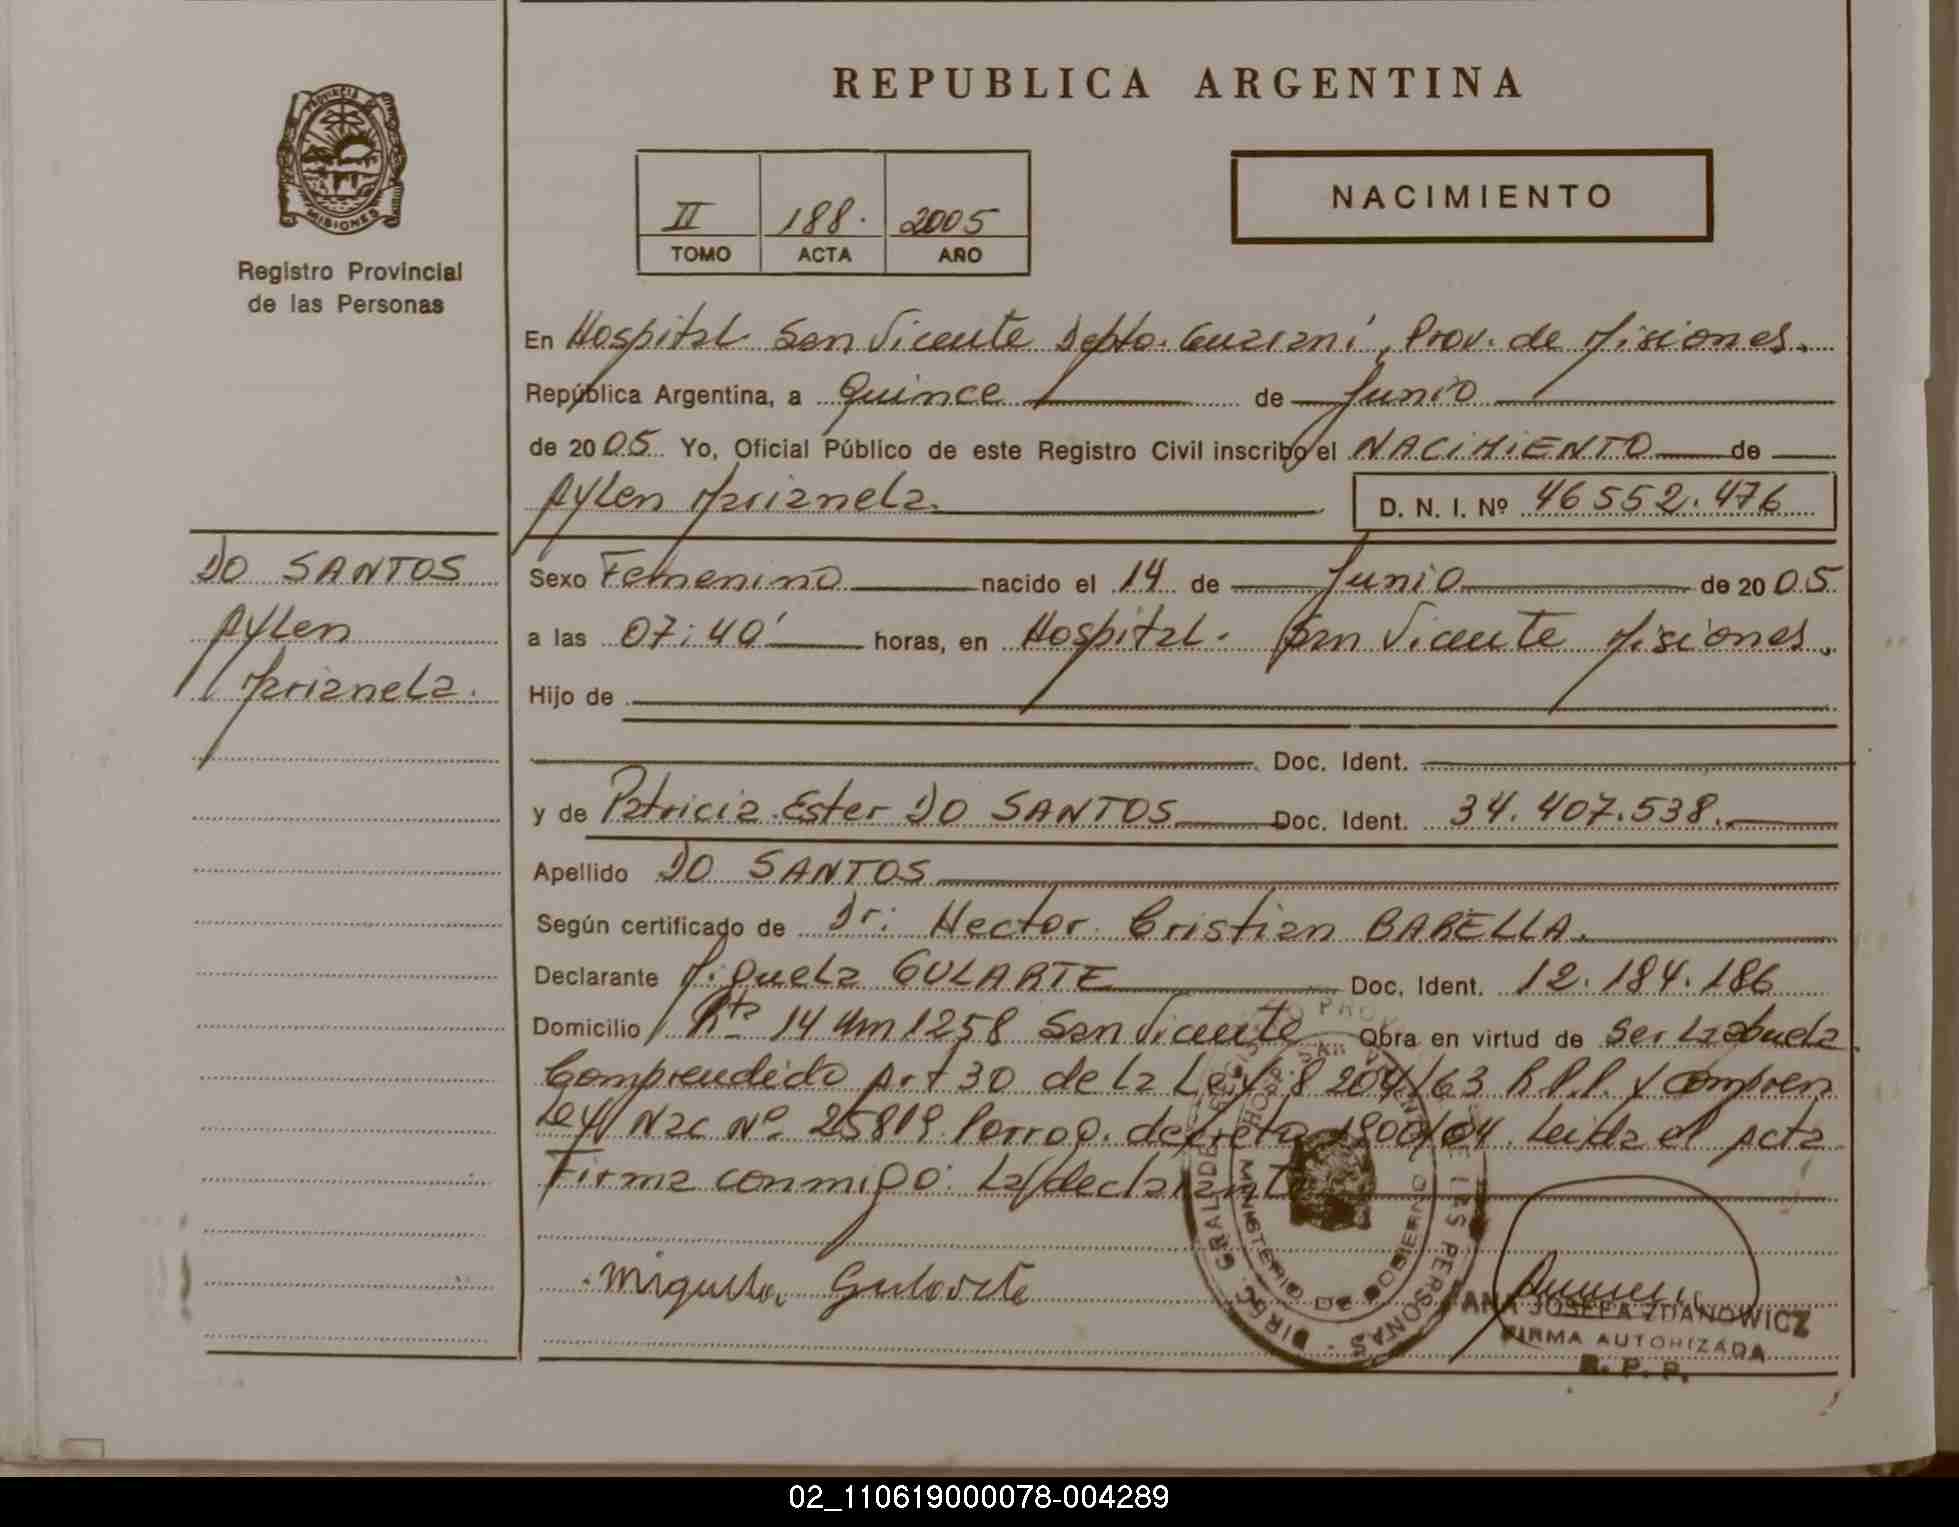 REPUBLICA ARGENTINA
PROVINCIA DE MISIONES
Registro Provincial
de las Personas
NACIMIENTO
II 188. 2005
TOMO ACTA AÑO
En Hospital San Vicente Depto. Guaraní, Prov. de Misiones.
República Argentina, a Quince de Junio
de 2005 Yo, Oficial Público de este Registro Civil inscribo el NACIMIENTO de
Aylen Marianela. D. N. I. Nº 46552.476
DO SANTOS
Aylen
Marianela.
Sexo Femenino nacido el 14 de Junio de 2005
a las 07:40' horas, en Hospital. San Vicente Misiones.
Hijo de
Doc. Ident.
y de Patricia Ester DO SANTOS Doc. Ident. 34.407.538.
Apellido DO SANTOS
Según certificado de Dr: Hector Cristian BARELLA.
Declarante Miguela GULARTE Doc. Ident. 12.184.186
Domicilio Rta 14 Km 1258 San Vicente Obra en virtud de Ser La abuela
Comprendido Art 30 de La Ley 8204/63 R.P.P. y Compren
Ley Nac Nº 25819 Porrog. decreto 1900/04. Leida el Acta
Firma conmigo: La declarante
Miguela Gularte
DIREC. GRAL. DE REGISTRO PROV. DE LAS PERSONAS
HOSP. SAN VICENTE
MINISTERIO DE GOBIERNO
ANA JOSEFA ZDANOWICZ
FIRMA AUTORIZADA
R. P. P.
02_110619000078-004289